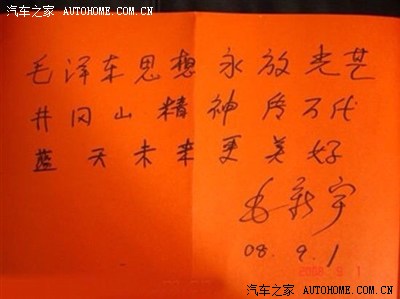 汽车之家 AUTOHOME.COM.CN
毛泽东思想永放光芒
井冈山精神传万代
蓝天未来更美好
毛新宇
08.9.1
2008 9 1
汽车之家 AUTOHOME.COM.CN